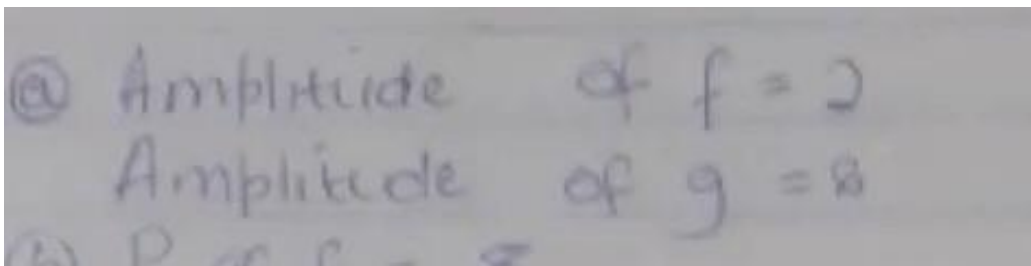 ⓐ Amplitude of f = 2
Amplitude of g = 8